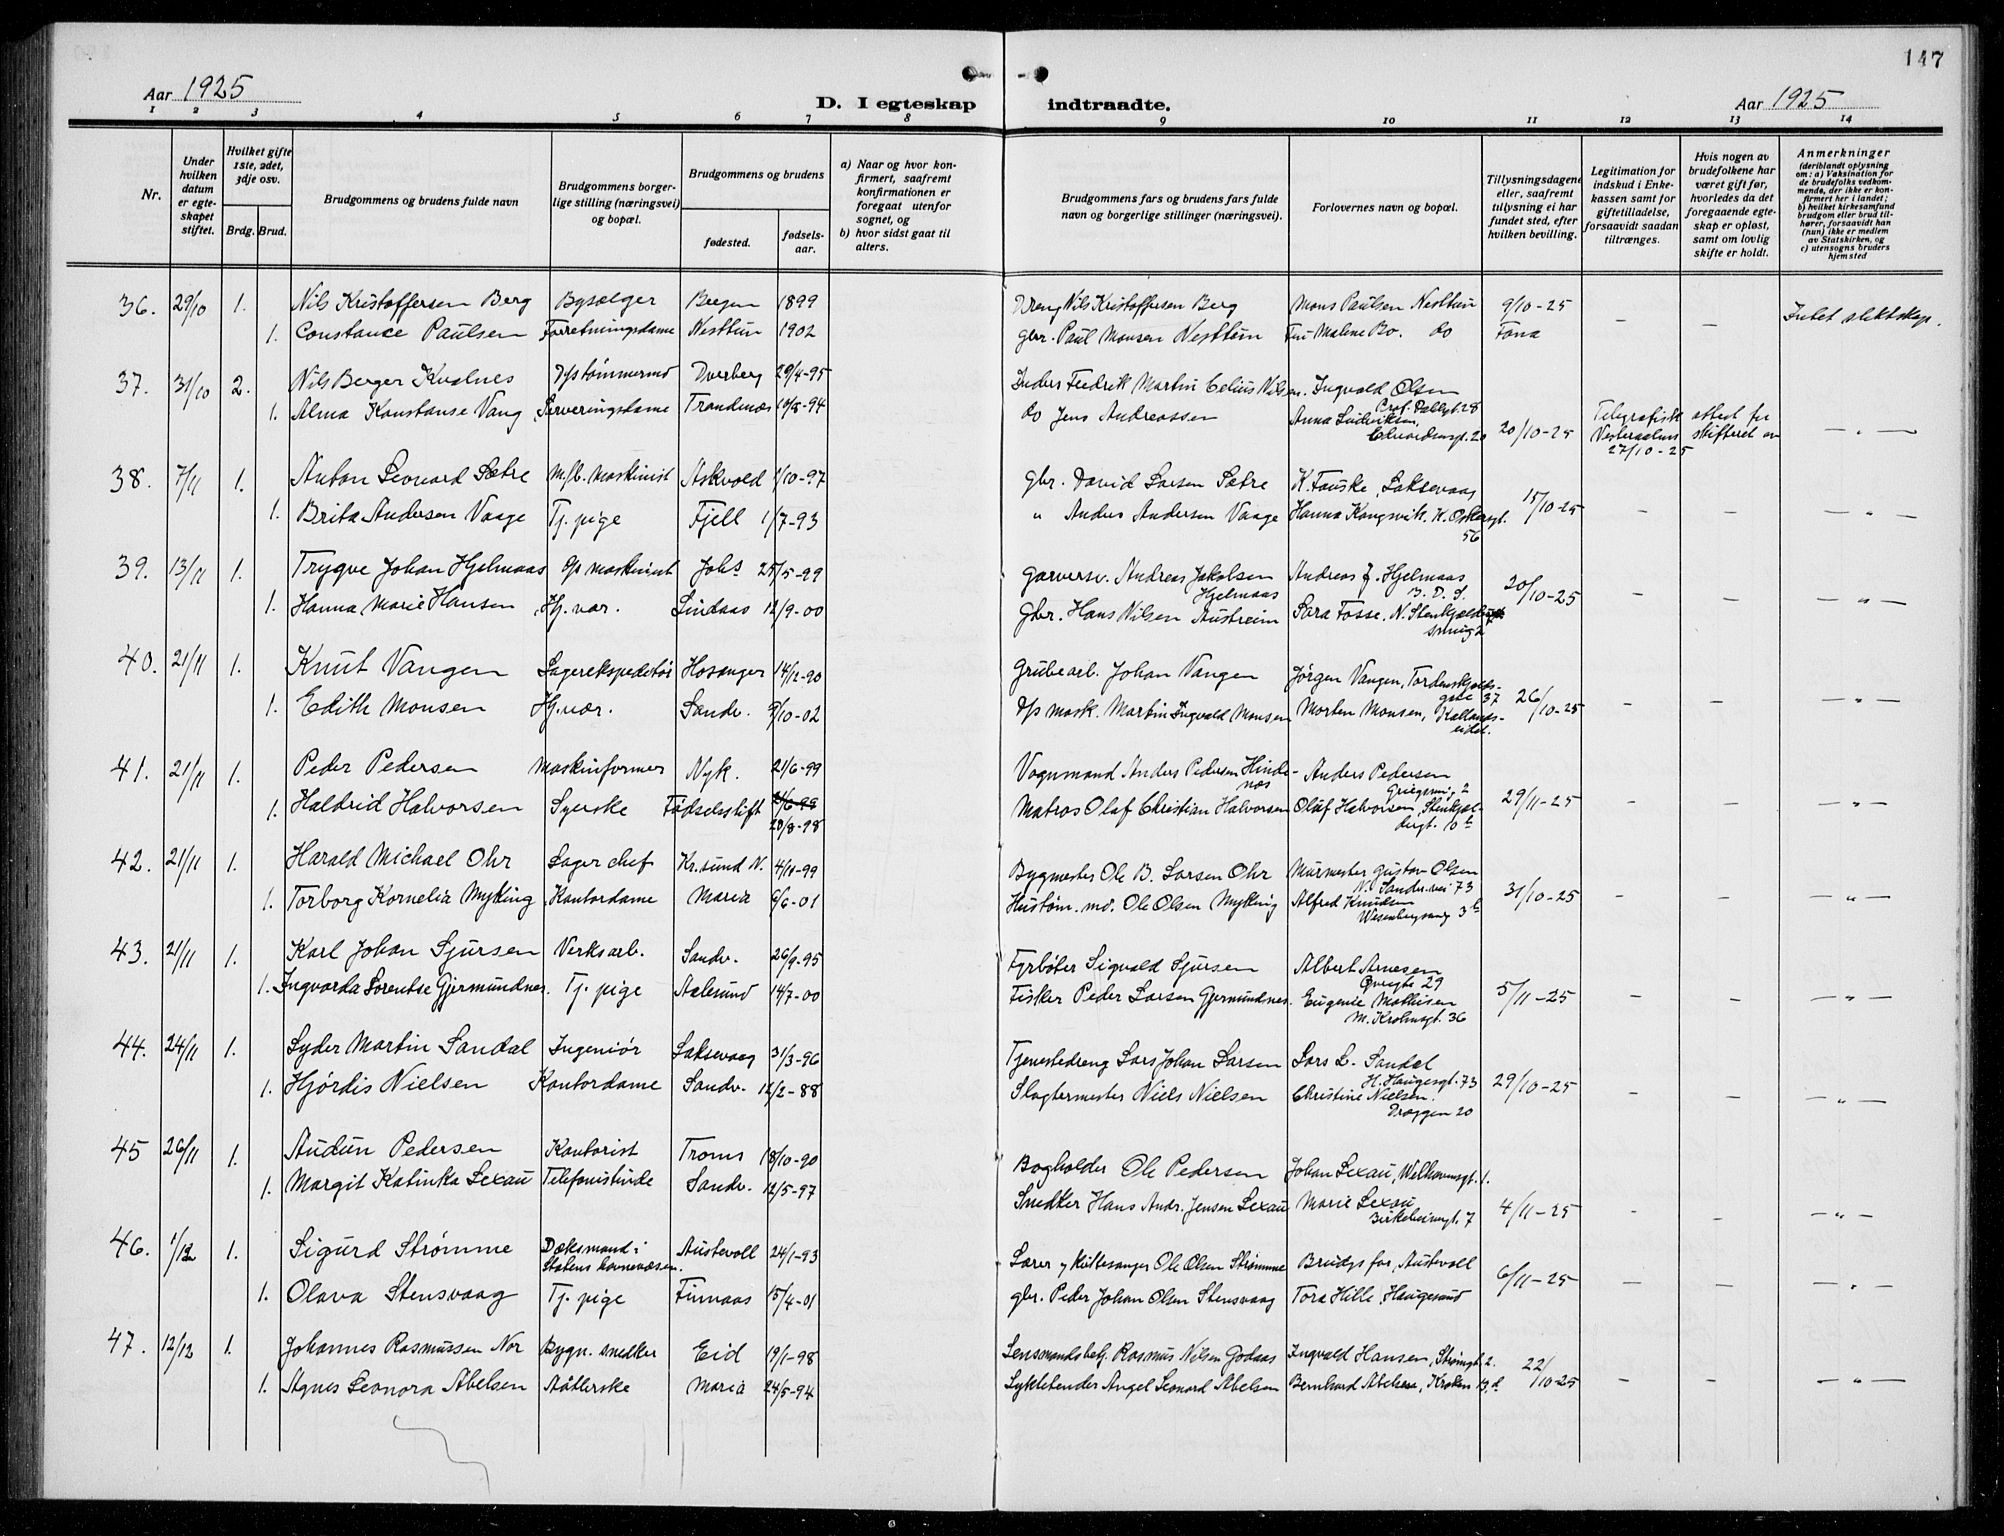 147
Aar 1925
D. I egteskap indtraadte.
Aar 1925
1 2 3 4 5 6 7 8 9 10 11 12 13 14
Nr.
Under hvilken datum er egteskapet stiftet.
Hvilket gifte 1ste, 2det, 3dje osv.
Brdg. Brud.
Brudgommens og brudens fulde navn
Brudgommens borgerlige stilling (næringsvei) og bopæl.
Brudgommens og brudens
fødested.
fødselsaar.
a) Naar og hvor konfirmert, saafremt konfirmationen er foregaat utenfor sognet, og
b) hvor sidst gaat til alters.
Brudgommens fars og brudens fars fulde navn og borgerlige stillinger (næringsvei).
Forlovernes navn og bopæl.
Tillysningsdagene eller, saafremt tillysning ei har fundet sted, efter hvilken bevilling.
Legitimation for indskud i Enkekassen samt for giftetilladelse, forsaavidt saadan tiltrænges.
Hvis nogen av brudefolkene har været gift før, hvorledes da det foregaaende egteskap er opløst, samt om lovlig skifte er holdt.
Anmerkninger
(deriblandt oplysning om: a) Vaksination for de brudefolks vedkommende, der ikke er konfirmert her i landet; b) hvilket kirkesamfund brudgom eller brud tilhører, forsaavidt han (hun) ikke er medlem av Statskirken, og c) utensogns bruders hjemsted
36. 29/10 1. Nils Kristoffersen Berg Bysælger Bergen 1899 Dreng Nils Kristoffersen Berg Mons Paulsen Nesttun 9/10-25 — — Intet slektskap.
1. Constance Paulsen Forretningsdame Nesttun 1902 Gbr. Paul Monsen Nesttun Fru Malene Bo. do Fana
37. 31/10 2. Nils Berger Kvalnes D/s tømmermd Dverberg 29/4-95 Inders Fredrik Martin Celius Nilsen. Ingvald Olsen
Prof. Dahlsgt. 28
1. Alma Konstanse Vang Serveringsdame Trondenæs 10/8-94 do Jens Andreassen Anna Ludviksen, Edvardsensgt. 20 20/10-25 Telegrafisk attest fra
Vesteraalens skifteret av
27/10-25 — „ —
38. 7/11 1. Anton Leonard Sætre M/b. maskinist Askvold 1/10-97 Gbr. David Larsen Sætre K. Fauske, Laksevaag
1. Brita Andersen Vaage Tj. pige Fjell 1/7-93 " Anders Andersen Vaage Hanna Kongsvik, K. Oskarsgt. 56 15/10-25 — — — „ —
39. 13/11 1. Trygve Johan Hjelmaas D/s maskinist Johs 25/5-99 Garversv. Andreas Jakobsen Hjelmaas Andreas J. Hjelmaas
B. D. S.
1. Hanna Marie Hansen Hj. vær. Lindaas 12/9-00 Gbr. Hans Nilsen Austreim Sara Fosse, N. Stenkjelder smug 2 20/10-25 — — — „ —
40. 21/11 1. Knut Vangen Lagerekspeditør Hosanger 14/12-90 Grubearb. Johan Vangen Jørgen Vangen, Tordenskjolds-
gate 37
1. Edith Monsen Hj. vær. Sandv. 9/10-02 D/s mask. Martin Ingvald Monsen Morten Monsen, Kallands-
eidet. 26/10-25 — — — „ —
41. 21/11 1. Peder Pedersen Maskinformer Nyk. 21/6-99 Vognmand Anders Pedersen Hinde-
næs Anders Pedersen
Griegsmug 2
1. Haldrid Halvorsen Syerske Fødselsstift 21/6-99
20/8-98 Matros Olaf Christian Halvorsen Olaf Halvorsen, Stenkjel-
dergt. 10 b 29/11-25 — — — „ —
42. 21/11 1. Harald Michael Ohr Lager chef Kr.sund N. 4/11-99 Bygmester Ole B. Larsen Ohr Murmester Gustav Olsen
N. Sandv.vei 73
1. Torborg Kornelia Myking Kontordame Maria 6/6-01 Hustøm. md. Ole Olsen Myking Alfred Knudsen
Wesenbergsmug 3 b 31/10-25 — — — „ —
43. 21/11 1. Karl Johan Sjursen Verksarb. Sandv. 26/9-95 Fyrbøter Sigvald Sjursen Albert Arnesen
Øvregte 29
1. Ingvarda Lorentse Gjermundnes. Tj. pige Aalesund 14/7-00 Fisker Peder Larsen Gjermundnes. Eugenie Mathisen
M. Krohnsgt. 36 5/11-25 — — — „ —
44. 24/11 1. Lyder Martin Sandal Ingeniør Laksevaag 31/3-96 Tjenestedreng Lars Johan Larsen Lars L. Sandal
H. Haugesgt. 73
1. Hjørdis Nielsen Kontordame Sandv. 12/2-88 Slagtermester Niels Nielsen Christine Nielsen.
Dræggen 20 29/10-25 — — — „ —
45 26/11 1. Audun Pedersen Kontorist Troms 18/10-90 Bogholder Ole Pedersen Johan Lexau, Welhavensgt. 1.
1. Margit Katinka Lexau Telefonistinde Sandv. 12/5-97 Snedker Hans Andr. Jensen Lexau Marie Lexau
Birkebeinergt. 7 4/11-25 — — — „ —
46. 1/12 1. Sigurd Strømme Dæksmand i
Statens havnevæsen. Austevoll 24/1-93 Lærer & kirkesanger Ole Olsen Strømme Brudgs far, Austevoll
1. Olava Stensvaag Tj. pige Finnaas 15/4-01 gbr. Peder Johan Olsen Stensvaag Tora Hille, Haugesund 6/11-25 — — — „ —
47. 12/12 1. Johannes Rasmussen Nor Bygn. snedker Eid 19/1-98 Lensmandsbetj. Rasmus Nilsen Godaas Ingvald Hansen, Strømgt. 2. 22/10-25
1. Agnes Leonora Abelsen Aatterske Maria 24/5-94 Lyktetender Angel Leonard Abelsen Bernhard Abelsen, Kroken 13 d. — — — „ —